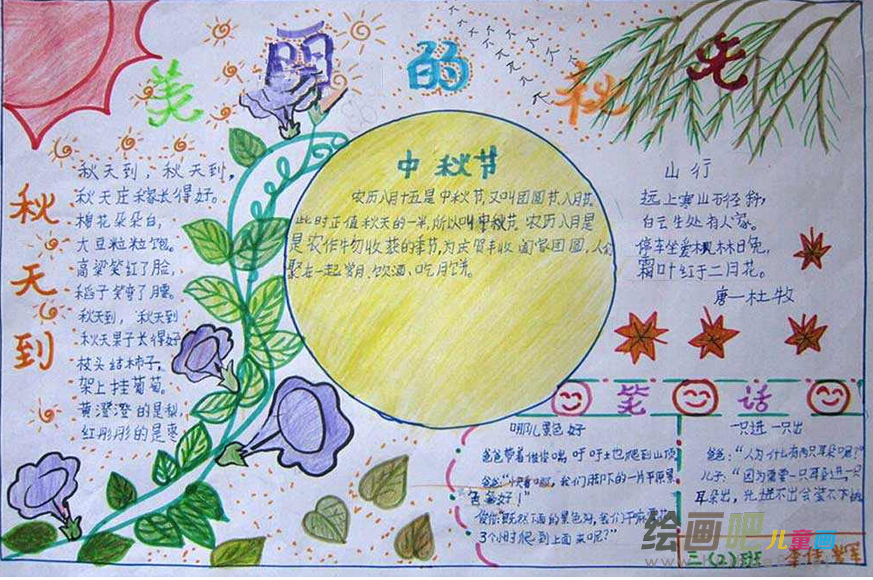 美丽的秋天
秋天到
秋天到，秋天到，
秋天庄稼长得好。
棉花朵朵白，
大豆粒粒饱。
高粱笑红了脸，
稻子笑弯了腰。
秋天到，秋天到
秋天果子长得好
枝头结柿子，
架上挂葡萄。
黄澄澄的是梨，
红彤彤的是枣
中秋节
农历八月十五是中秋节，又叫团圆节、八月节。
此时正值秋天的一半，所以叫中秋节。农历八月是
是农作物收获的季节，为庆贺丰收 阖家团圆，人们
聚在一起赏月、饮酒、吃月饼。
山行
远上寒山石径斜，
白云生处有人家。
停车坐爱枫林日免，
霜叶红于二月花。
唐一杜牧
笑话
哪儿景色好
爸爸带着俊俊喘吁吁地爬到山顶
爸爸"快看哪，我们脚下的一片平原景
色多好！"
俊俊"既然下面的景色好，我们干嘛要花
3个小时爬到上面来呢？"
一只进一只出
爸爸："人为什么有两只耳朵呢？"
儿子："因为需要一只耳朵进，一只
耳朵出，光进不出会装不下的
三(2)班
绘画吧
儿童画